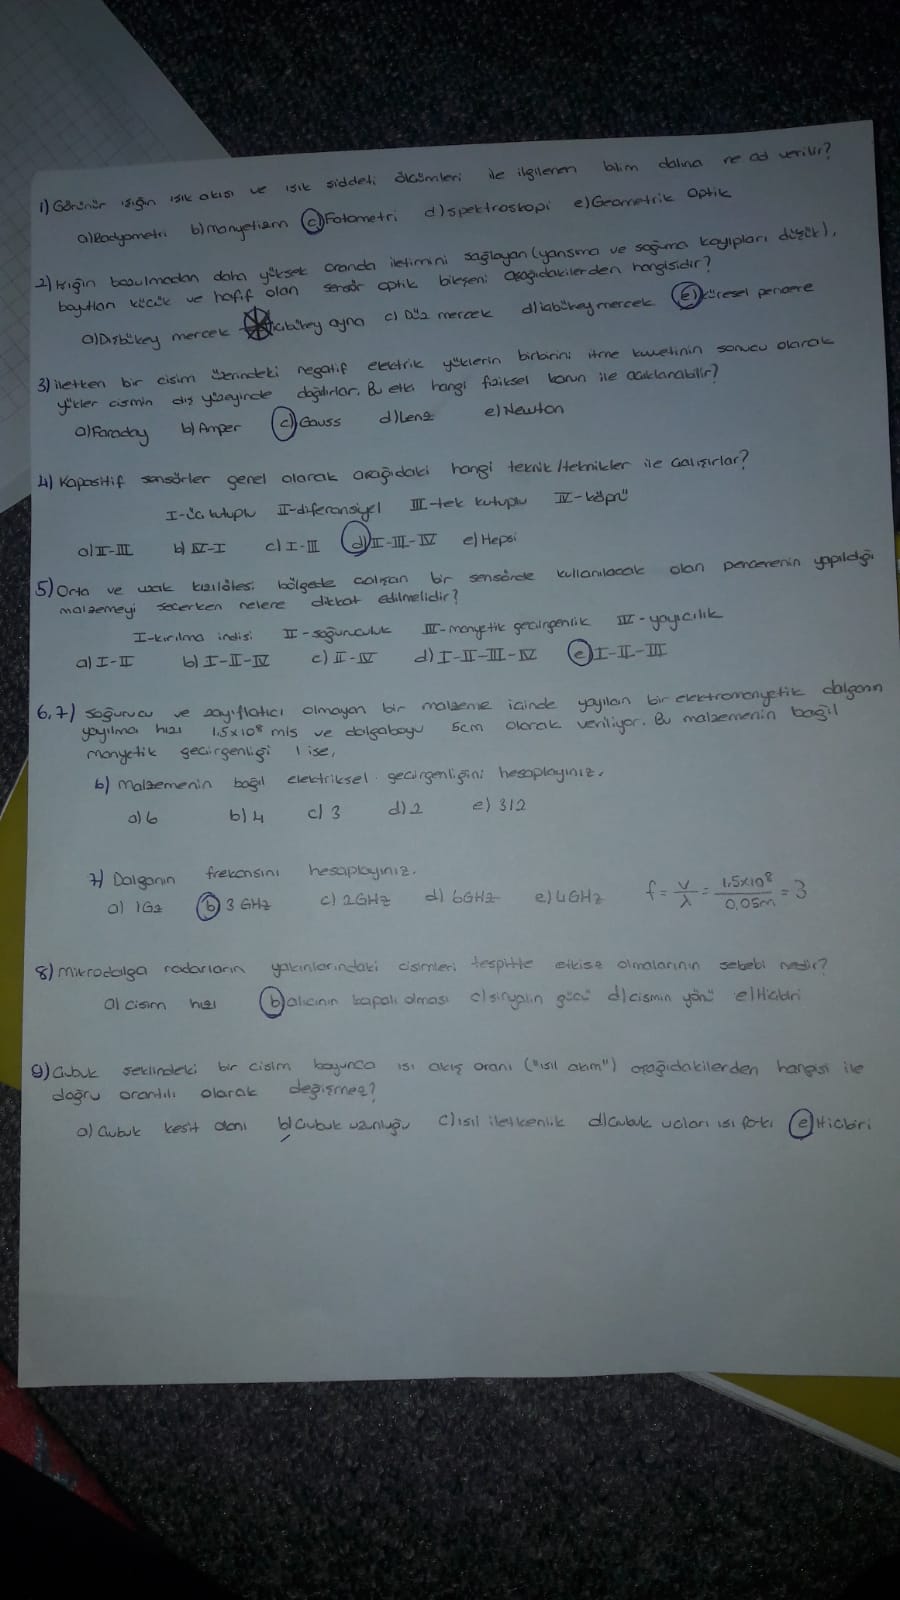 1) Görünür ışığın ışık akısı ve ışık şiddeti ölçümleri ile ilgilenen bilim dalına ne ad verilir?
a) Radyometri b) Manyetizm c) Fotometri d) spektroskopi e) Geometrik Optik
2) Işığın bozulmadan daha yüksek oranda iletimini sağlayan (yansıma ve soğurma kayıpları düşük),
boyutları küçük ve hafif olan sensör optik bileşeni aşağıdakilerden hangisidir?
a) Dışbükey mercek ayna c) Düz mercek d) içbükey mercek e) küresel pencere
3) iletken bir cisim üzerindeki negatif elektrik yüklerin birbirini itme kuvvetinin sonucu olarak
yükler cismin dış yüzeyinde dağılırlar. Bu etki hangi fiziksel kanun ile açıklanabilir?
a) Faraday b) Amper c) Gauss d) Lenz e) Newton
4) Kapasitif sensörler genel olarak aşağıdaki hangi teknik/teknikler ile çalışırlar?
I-üç kutuplu II-diferansiyel III-tek kutuplu IV-köprü
a) II-III b) IV-I c) I-III d) II-III-IV e) Hepsi
5) Orta ve uzak kızılötesi bölgede çalışan bir sensörde kullanılacak olan pencerenin yapıldığı
malzemeyi seçerken nelere dikkat edilmelidir?
I-kırılma indisi II-soğurculuk III-manyetik geçirgenlik IV-yayıcılık
a) I-II b) I-II-IV c) II-IV d) I-II-III-IV e) I-II-III
6,7) soğurucu ve zayıflatıcı olmayan bir malzeme içinde yayılan bir elektromanyetik dalganın
yayılma hızı 1,5x10⁸ m/s ve dalgaboyu 5cm olarak veriliyor. Bu malzemenin bağıl
manyetik geçirgenliği 1 ise,
6) Malzemenin bağıl elektriksel geçirgenliğini hesaplayınız.
a) 6 b) 4 c) 3 d) 2 e) 3/2
7) Dalganın frekansını hesaplayınız.
a) 1Gz b) 3 GHz c) 2GHz d) 6GHz e) 4GHz f = V/λ = 1,5x10⁸/0,05m = 3
8) Mikrodalga radarların yakınlarındaki cisimleri tespitte etkisiz olmalarının sebebi nedir?
a) cisim hızı b) alıcının kapalı olması c) sinyalin gücü d) cismin yönü e) Hiçbiri
9) Çubuk şeklindeki bir cisim boyunca ısı akış oranı ("ısıl akım") aşağıdakilerden hangisi ile
doğru orantılı olarak değişmez?
a) Çubuk kesit alanı b) Çubuk uzunluğu c) ısıl iletkenlik d) Çubuk uçları ısı farkı e) Hiçbiri